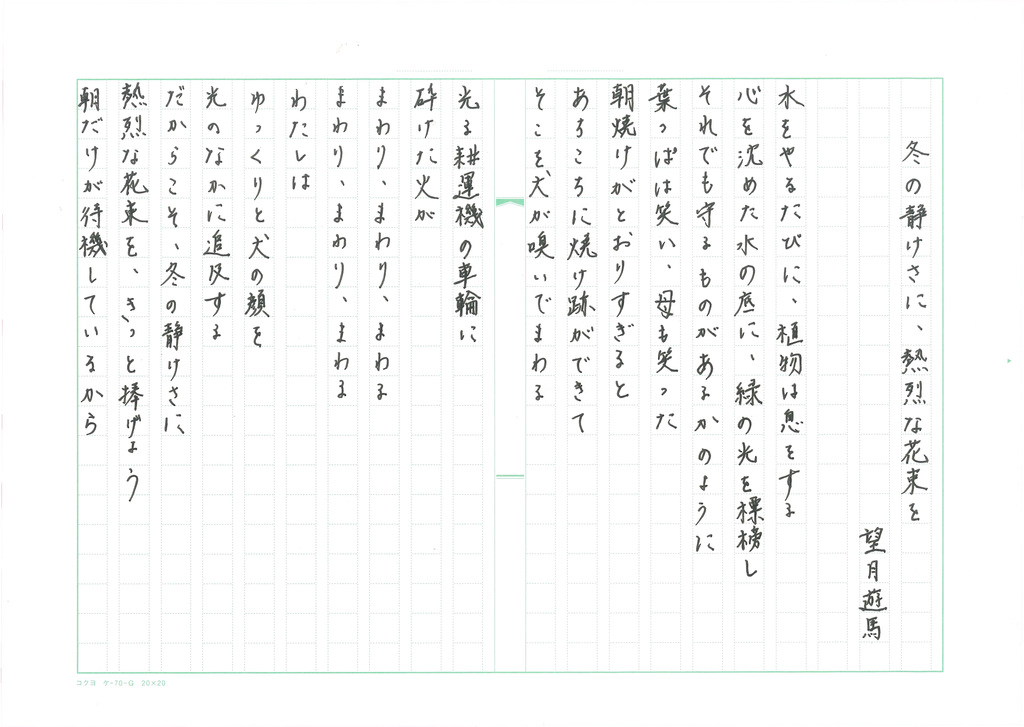 冬の静けさに、熱烈な花束を
望月遊馬
水をやるたびに、植物は息をする
心を沈めた水の底に、緑の光を標榜し
それでも守るものがあるかのように
葉っぱは笑い、母も笑った
朝焼けがとおりすぎると
あちこちに焼け跡ができて
そこを犬が嗅いでまわる
光る耕運機の車輪に
砕けた火が
まわり、まわり、まわる
まわり、まわり、まわる
わたしは
ゆっくりと犬の顔を
光のなかに追及する
だからこそ、冬の静けさに
熱烈な花束を、きっと捧げよう
朝だけが待機しているから
コクヨ ケ-70-G 20×20